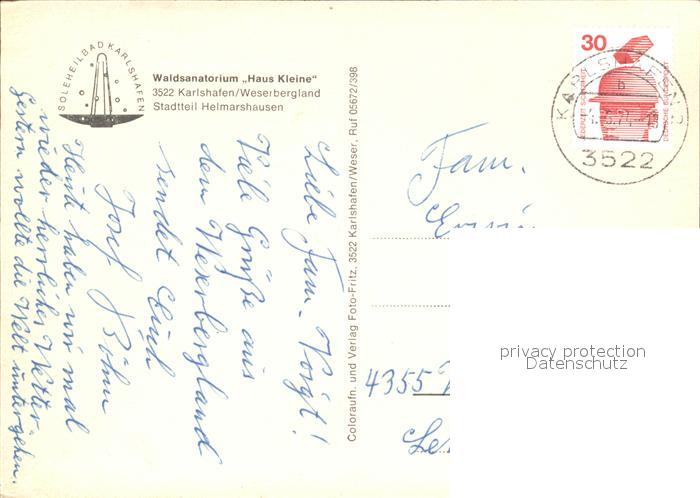 SOLEHEILBAD KARLSHAFEN
Waldsanatorium „Haus Kleine“
3522 Karlshafen/Weserbergland
Stadtteil Helmarshausen
Liebe Fam. Voigt!
Viele Grüße aus
dem Weserbergland
sendet Euch
Josef Böhm
Heute haben wir mal
wieder herrliches Wetter
Gestern wollte die Welt untergehen.
Coloraufn. und Verlag Foto-Fritz, 3522 Karlshafen/Weser, Ruf 05672/398
30
JEDERZEIT SICHERHEIT
DEUTSCHE BUNDESPOST
KARLSHAFEN
b
3522
Fam.
4355
privacy protection
Datenschutz